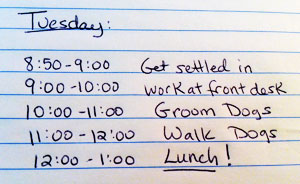 Tuesday:
8:50-9:00 Get settled in
9:00-10:00 work at front desk
10:00-11:00 Groom Dogs
11:00-12:00 Walk Dogs
12:00-1:00 Lunch!